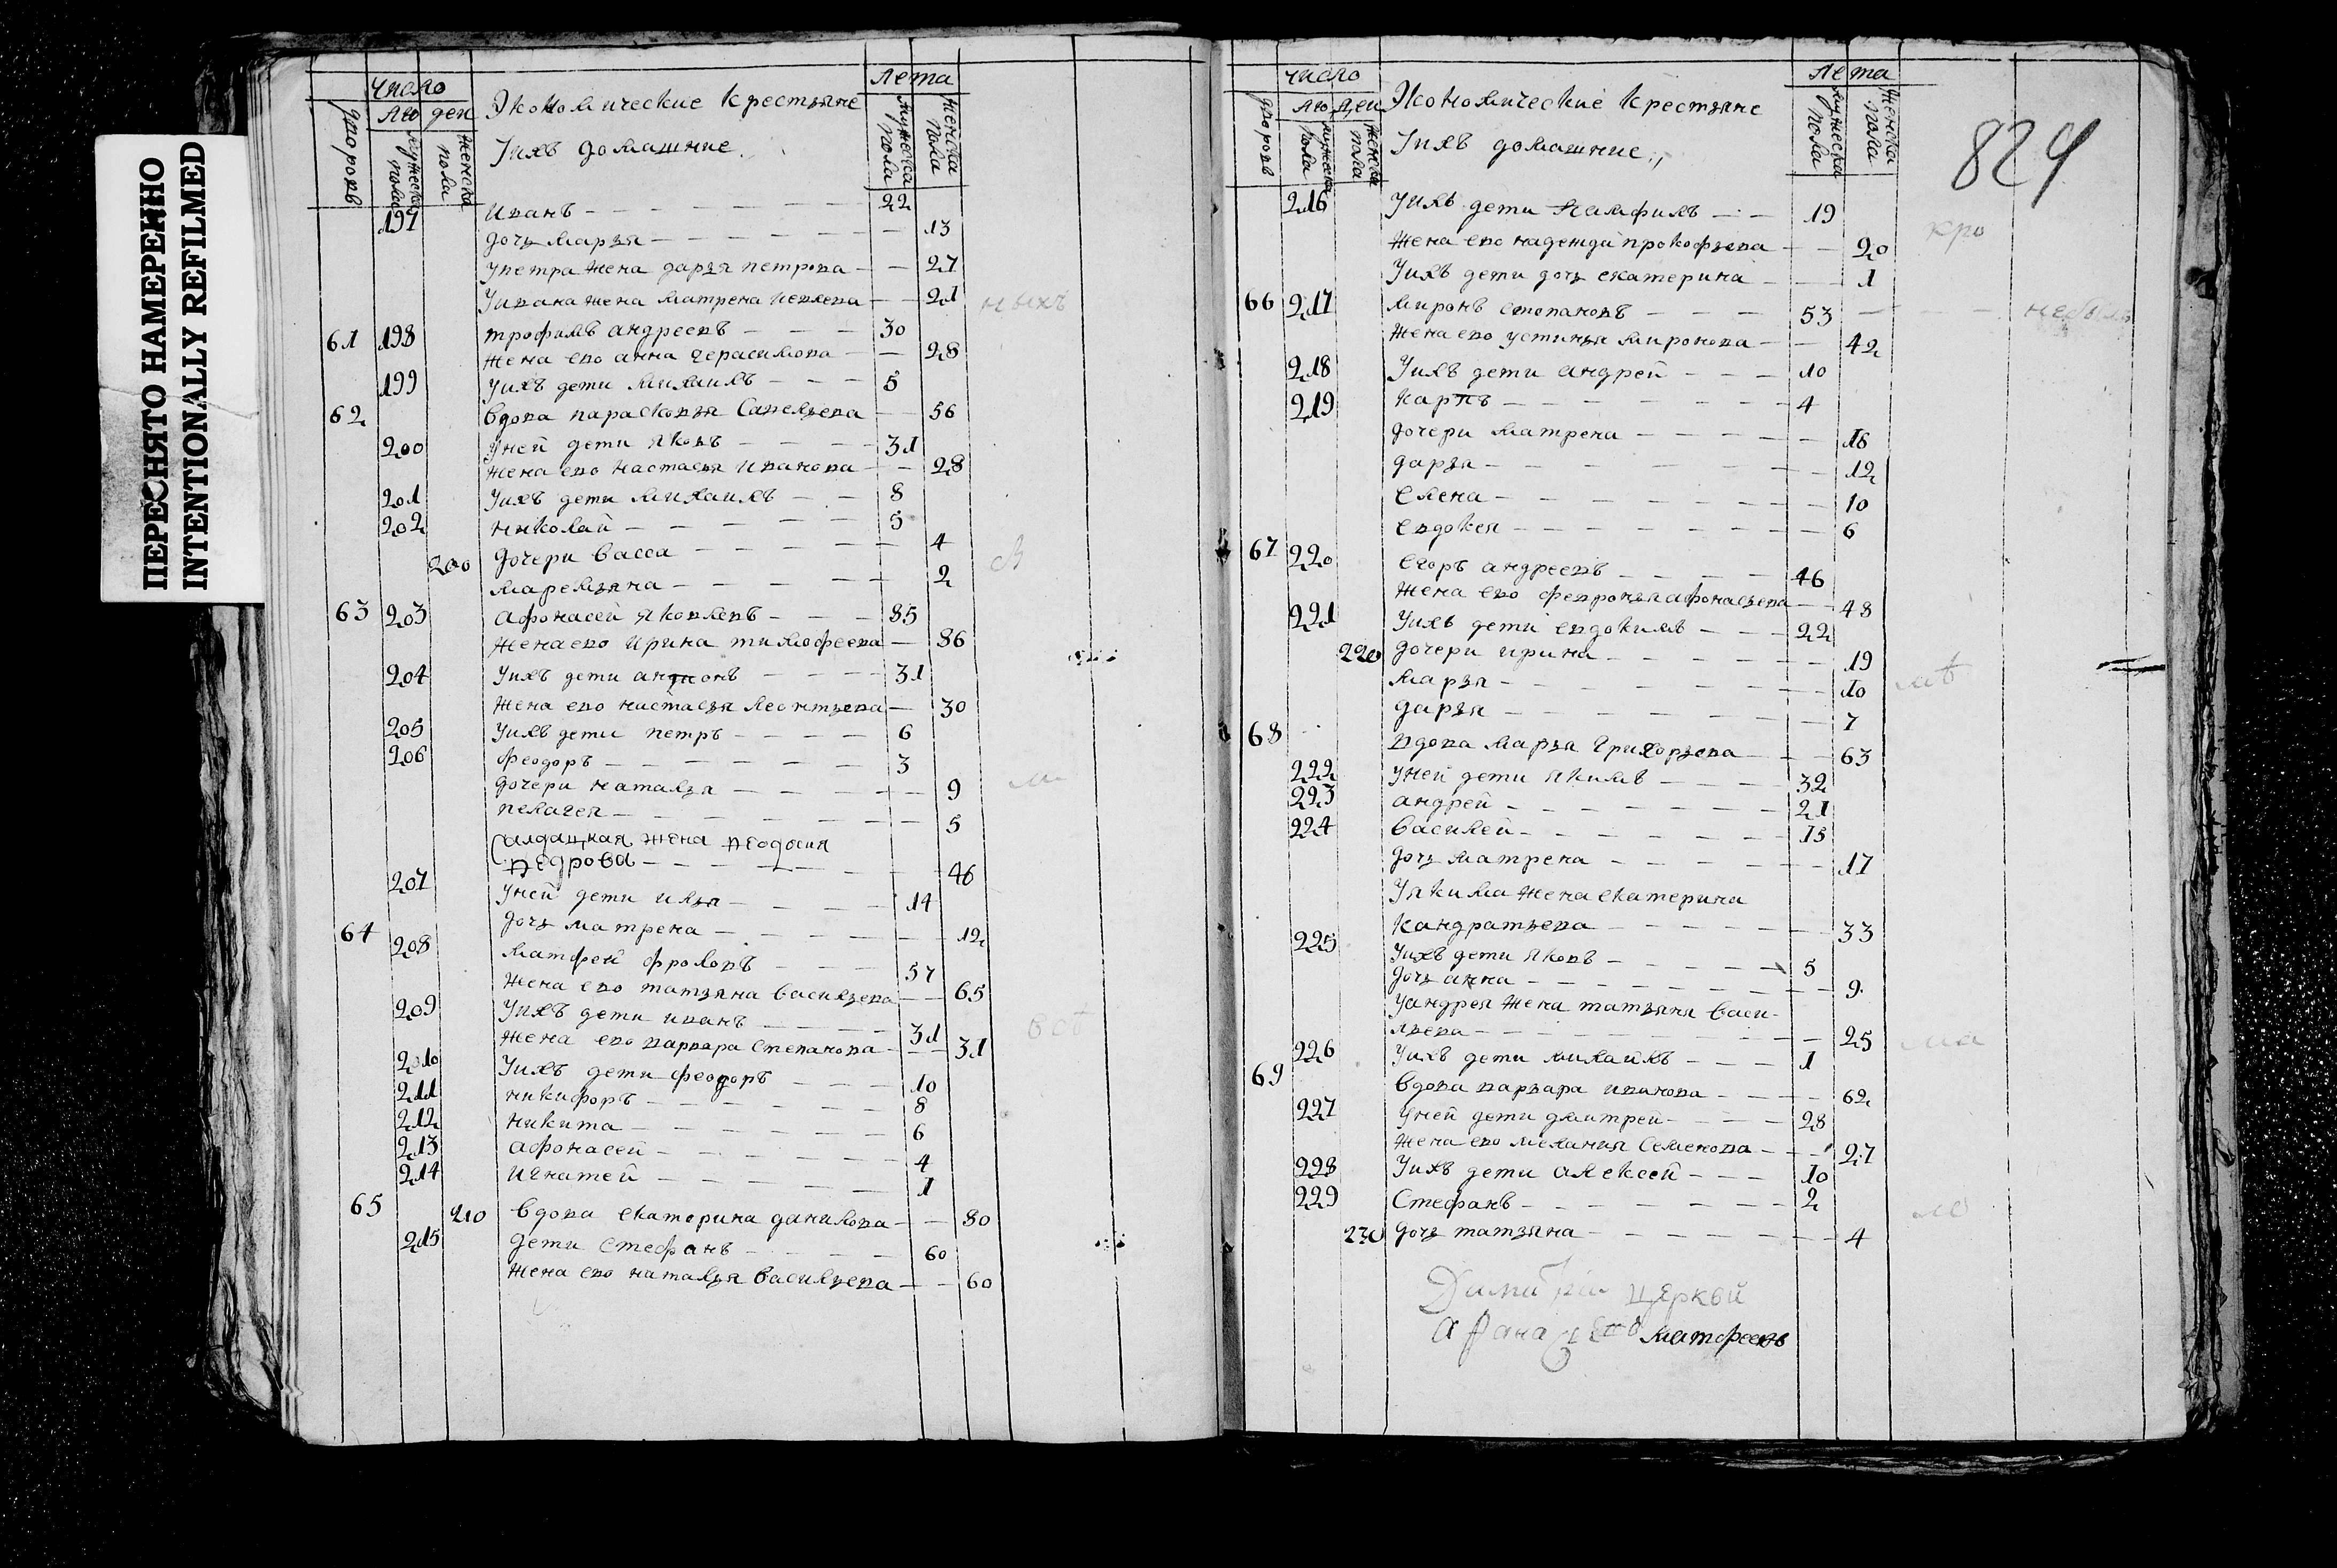 ПЕРЕСНЯТО НАМЕРЕННО
INTENTIONALLY REFILMED
число
лета
дворовъ
лю дей
мужеска пола
женска пола
Экономические крестьяне
Уихъ домашние
мужеска пола
женска пола
197 Иванъ 22
дочь марья 13
Упетра жена дарья петрова 27
Уивана жена матрена 21
61 198 трофимъ андреевъ 30
жена ево анна герасимова 28
199 Уихъ дети михаилъ 5
62 вдова парасковья Савельева 56
200 Уней дети яковъ 31
жена ево настасья иванова 28
201 Уихъ дети михаилъ 8
202 николай 5
дочери васса 4
200 маремьяна 2
63 203 афонасей яковлевъ 85
жена ево ирина тимофеева 86
204 Уихъ дети антонъ 31
жена ево настасья леонтьева 30
205 Уихъ дети петръ 6
206 феодоръ 3
дочери наталья 9
пелагея 5
Салдацкая жена Феодосия
Федрова 46
207 Уней дети илья 14
дочь матрена 12
64 208 матфей фроловъ 57
жена ево татьяна васильева 65
209 Уихъ дети иванъ 31
жена ево варвара степанова 31
210 Уихъ дети феодоръ 10
211 никифоръ 8
212 никита 6
213 афонасей 4
214 игнатей 1
65 210 вдова екатерина данилова 80
215 дети стефанъ 60
жена ево наталья васильева 60
число
лета
дворовъ
лю дей
мужеска пола
женска пола
Экономические крестьяне
Уихъ домашние
мужеска пола
женска пола
824
216 Уихъ дети памфилъ 19
жена ево надежда прокофьева 20
Уихъ дети дочь екатерина 1
66 217 миронъ степановъ 53
жена ево устинья миронова 42
218 Уихъ дети андрей 10
219 карпъ 4
дочери матрена 16
дарья 12
елена 10
евдокея 6
67 220 егоръ андреевъ 46
жена ево февронья афонасьева 48
221 Уихъ дети евдокимъ 22
220 дочери ирина 19
марья 10
дарья 7
68 вдова марья григорьева 63
222 Уней дети якимъ 32
223 андрей 21
224 василей 15
дочь матрена 17
Уякима жена екатерина
кандратьева 33
225 Уихъ дети яковъ 5
дочь анна 9
Уандрея жена татьяна васи-
льева 25
226 Уихъ дети михаилъ 1
69 вдова варвара иванова 62
227 Уней дети дмитрей 28
жена ево мелания Семенова 27
228 Уихъ дети алексей 10
229 Стефанъ 2
230 дочь татьяна 4
церкви
матфеевъ